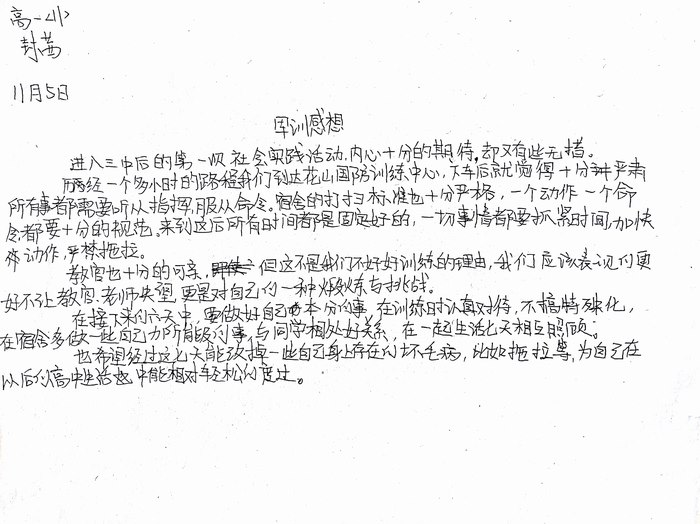 高一
封茜
11月5日
军训感想
进入三中后的第一次社会实践活动,内心十分的期待,却又有些无措。
历经一个多小时的路程我们到达花山国防训练中心,下车后就觉得十分严肃
所有事都需要听从指挥,服从命令。宿舍的打扫标准也十分严格,一个动作一个命
令都要十分的规范。来到这后所有时间都是固定好的,一切事情都要抓紧时间,加快
动作,严禁拖拉。
教官也十分的可亲,但这不是我们不好好训练的理由,我们应该表现的更
好不让教官、老师失望,更是对自己的一种煅炼与挑战。
在接下来的六天中,要做好自己本分的事,在训练时认真对待,不搞特殊化,
在宿舍多做一些自己力所能及的事,与同学相处好关系,在一起生活七天相互照顾。
也希望经过这七天能改掉一些自己身上存在的坏毛病,比如拖拉等,为自己在
以后的高中生活中能相对轻松的度过。